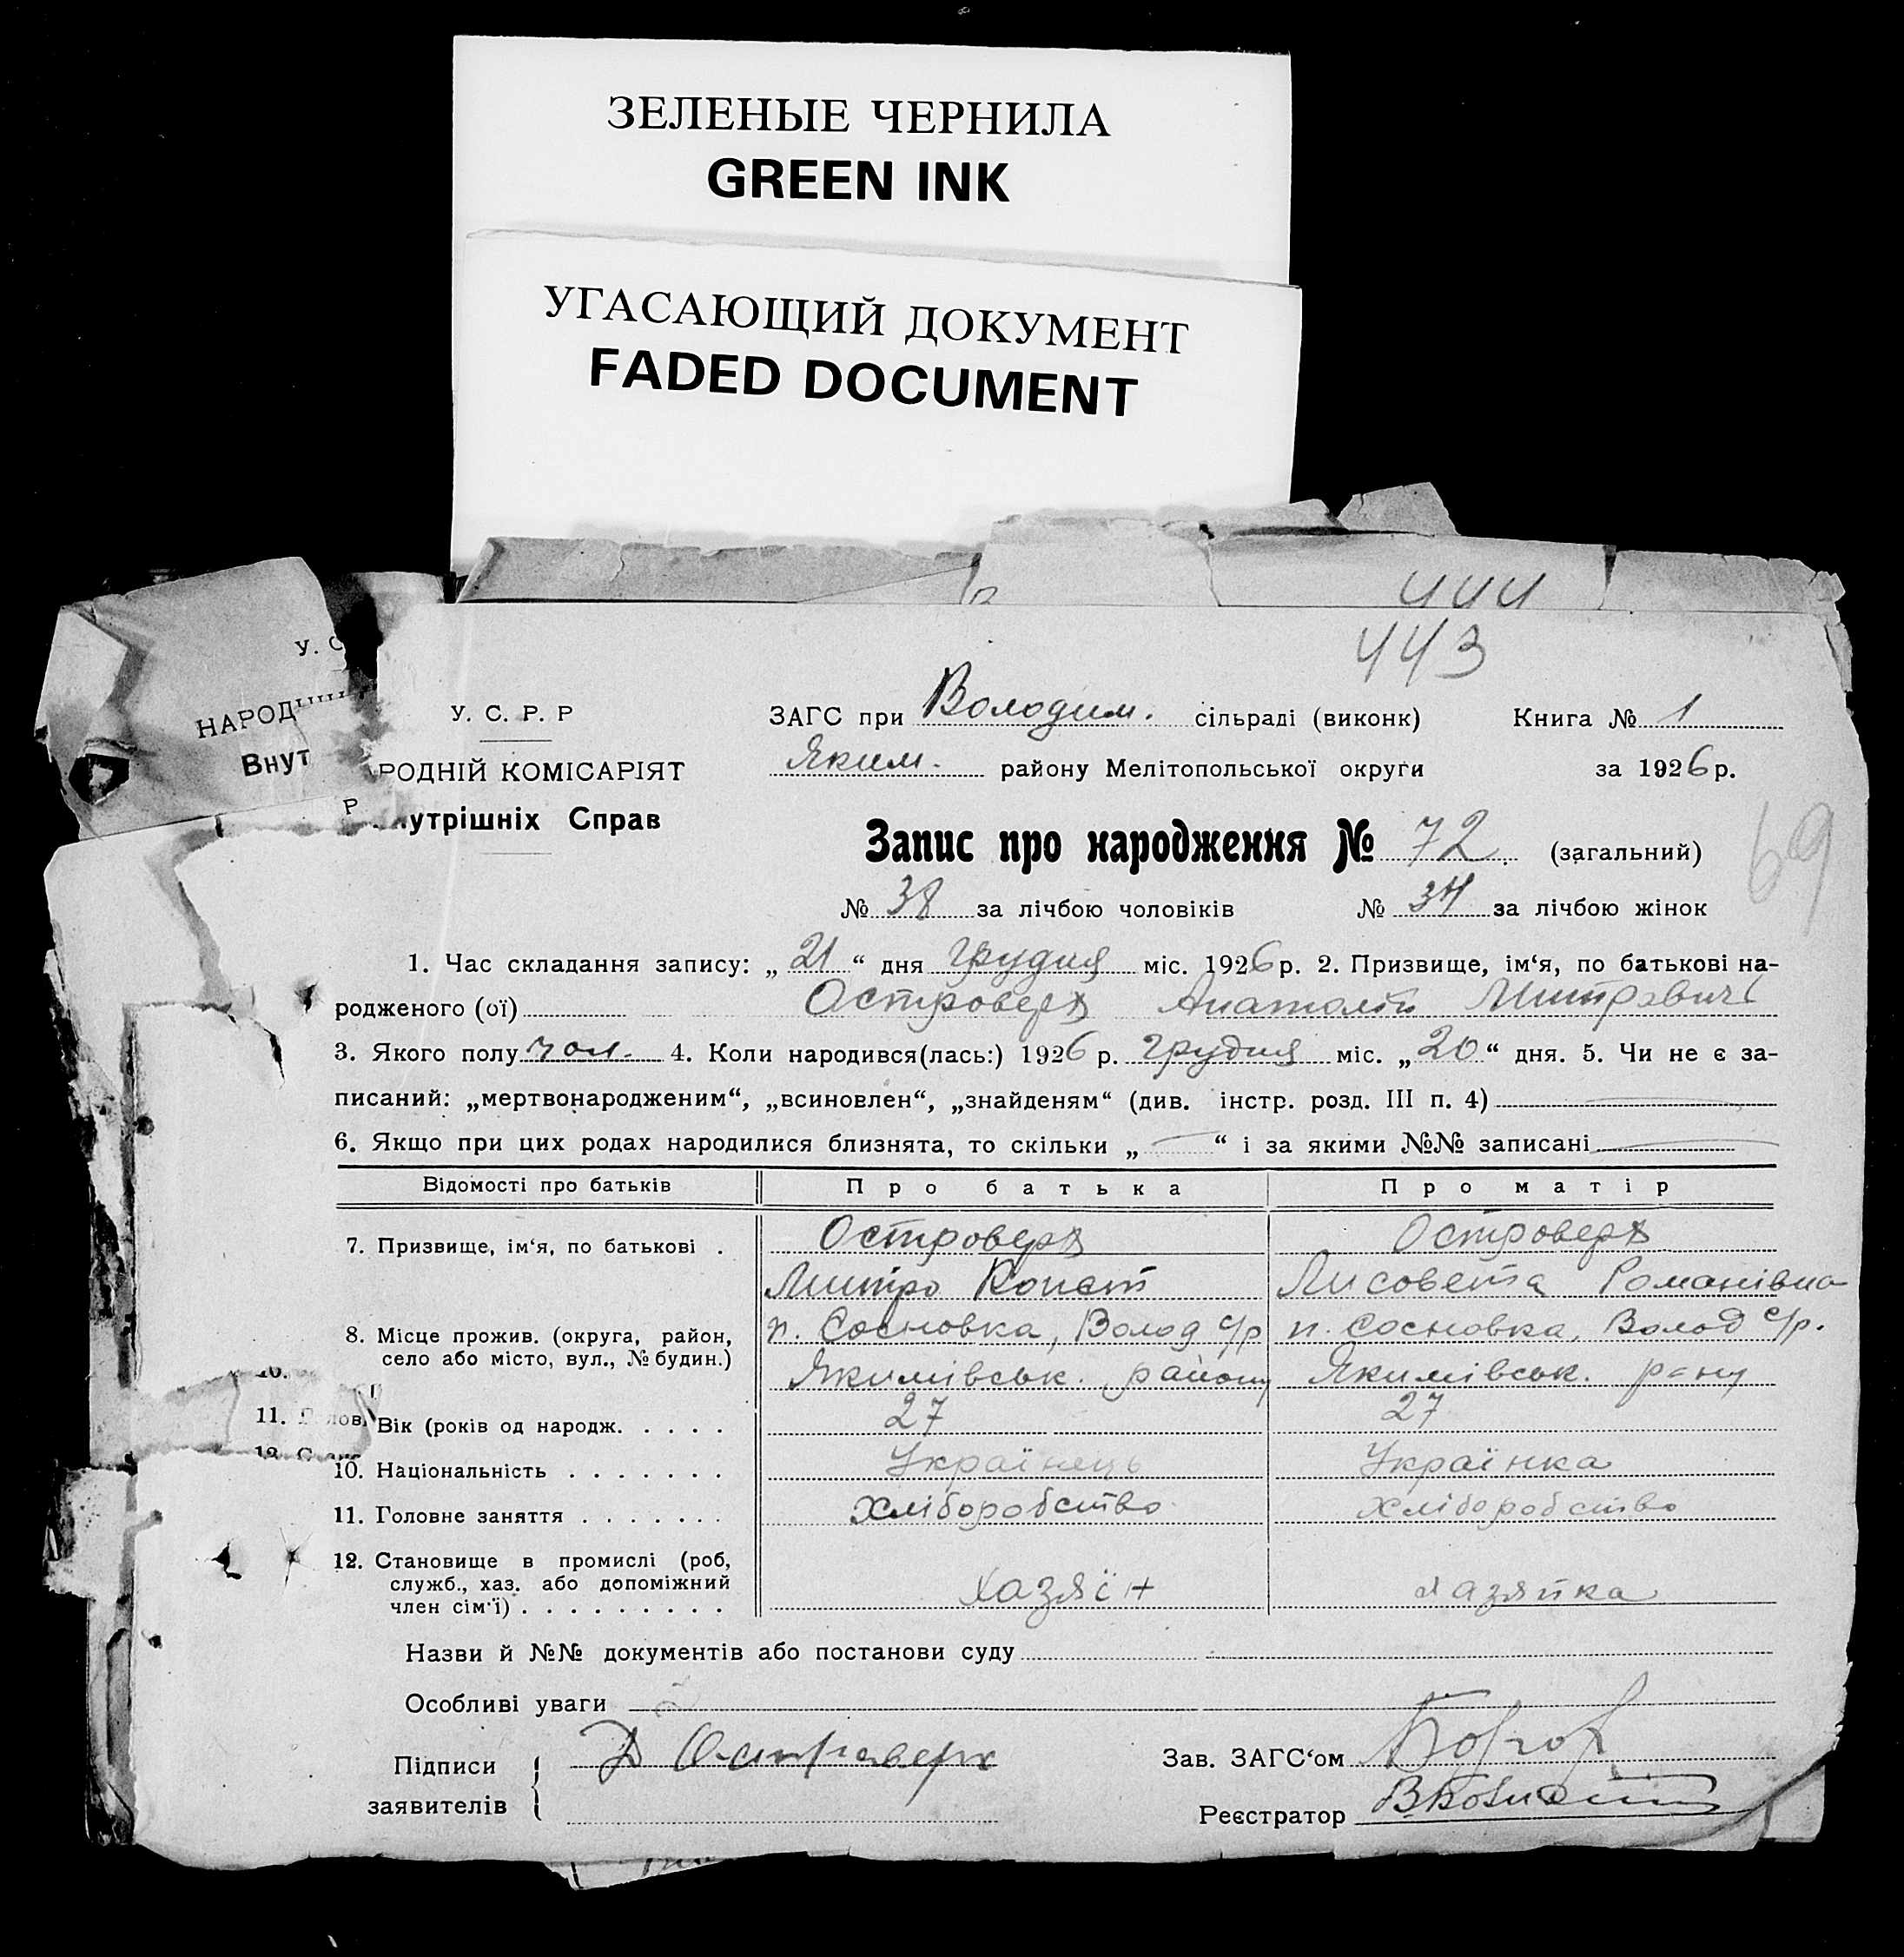 ЗЕЛЕНЫЕ ЧЕРНИЛА
GREEN INK
УГАСАЮЩИЙ ДОКУМЕНТ
FADED DOCUMENT
444
443
У. С
НАРОД
Внут
У. С. Р. Р
РОДНІЙ КОМІСАРІЯТ
утрішніх Справ
ЗАГС при Володим. сільраді (виконк) Книга № 1
Яким. району Мелітопольської округи за 1926 р.
Запис про народження № 72 (загальний)
69
№ 38 за лічбою чоловіків № 34 за лічбою жінок
1. Час складання запису: „21“ дня грудня міс. 1926 р. 2. Призвище, ім‘я, по батькові на-
родженого (ої) Островерх Анатолій Митрович
3. Якого полу чол. 4. Коли народився(лась:) 1926 р. грудня міс. „20“ дня. 5. Чи не є за-
писаний: „мертвонародженим“, „всиновлен“, „знайденям“ (див. інстр. розд. III п. 4)
6. Якщо при цих родах народилися близнята, то скільки „ “ і за якими №№ записані
Відомості про батьків Про батька Про матір
7. Призвище, ім‘я, по батькові . Островерх Островерх
Митро Конст Лисовета Романівна
8. Місце прожив. (округа, район, п. Сосновка, Волод с/р п. Сосновка, Волод с/р.
село або місто, вул., № будин.) Якимівськ. району Якимівськ. р-ну
Вік (років од народж. . . . . 27 27
10. Національність . . . . . . . Українець Українка
11. Головне заняття . . . . . . . хліборобство хліборобство
12. Становище в промислі (роб,
служб., хаз. або допоміжний хазяїн хазяйка
член сім‘ї) . . . . . . . . .
Назви й №№ документів або постанови суду
Особливі уваги
Підписи Д Островерх Зав. ЗАГС‘ом
заявителів Реєстратор